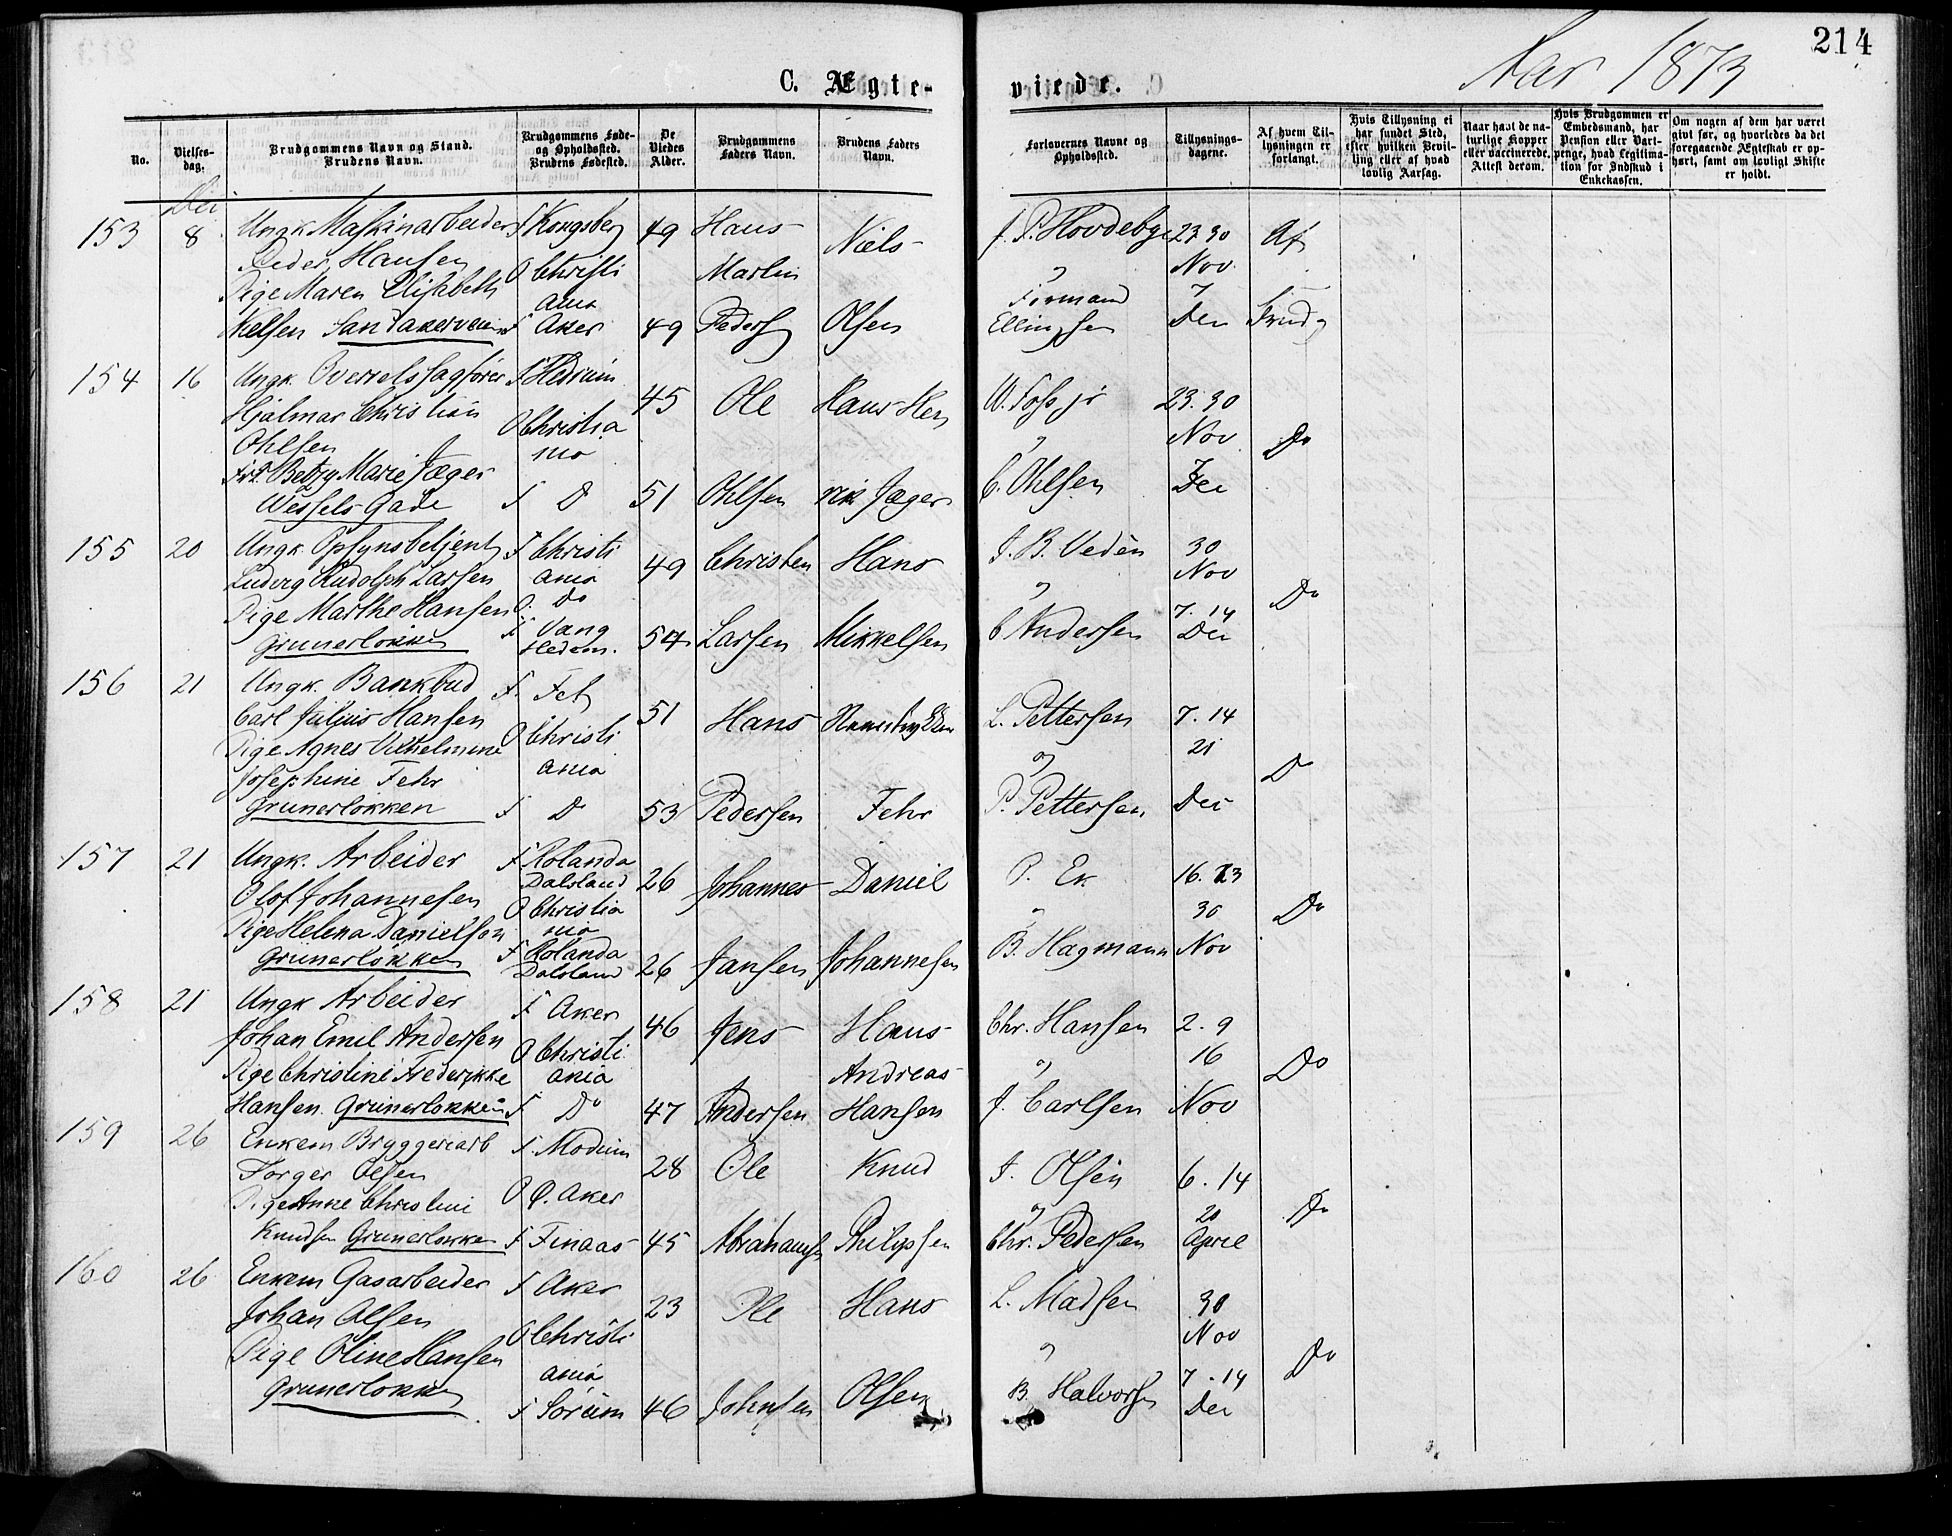 214
Aar 1873
C. Ægte-
viede.
No.
Vielses-
dag.
Brudgommens Navn og Stand.
Brudens Navn.
Brudgommens Føde-
og Opholdssted.
Brudens Fødested.
De
Viedes
Alder.
Brudgommens
Faders Navn.
Brudens Faders
Navn.
Forlovernes Navne og
Opholdssted.
Tillysnings-
dagene.
Af hvem Til-
lysningen er
forlangt.
Hvis Tillysning ei
har fundet Sted,
efter hvilken Bevil-
ling eller af hvad
lovlig Aarsag.
Naar havt de na-
turlige Kopper
eller vaccinerede.
Attest derom.
Hvis Brudgommen er
Embedsmand, har
Pension eller Vart-
penge, hvad Legitima-
tion for Indskud i
Enkekassen.
Om nogen af dem har været
givt før, og hvorledes da det
foregaaende Ægteskab er op-
hørt, samt om lovligt Skifte
er holdt.
153 8 Ungk. Maskinarbeider F Kongsberg 49 Hans Niels J. P. Hovdebye 23 30 Af
Peder Hansen O Christi Martin Nov
Pige Maren Elisabeth ania Formand 7
Nielsen Sandakerveien F Aker 49 Peders Olsen Ellingsen Dec Brudg
154 16 Ungk. Overretssagfører F Hedrum 45 Ole Hans Hen W. Foss jr 23. 30
Hjalmar Christian O Christia Nov Do
Ohlsen nia
Frk. Betzy Marie Jæger 7
Wessels Gade F D 51 Ohlsen rik Jæger C. Ohlsen Dec
155 20 Ungk. Opsynsbetjent F Christi 49 Christen Hans J. B. Vedén 30
Ludvig Rudolph Larsen ania Nov
Pige Marthe Hansen O. Do 7. 14 Do
Grunerløkken F Vang 54 Larsen Mikkelsen C Andersen Dec
Hedem.
156 21 Ungk. Bankbud F. Fet 51 Hans L. Pettersen 7. 14
Carl Julius Hansen O Christi 21
Pige Agnes Vilhelmine ania Do
Josephine Fehr
Grunerløkken F D 53 Pedersen Fehr P. Pettersen Dec
157 21 Ungk. Arbeider F Rolanda 26 Johannes Daniel P. Ek 16. 23
Olof Johannesen Dalsland 30 Do
Pige Helena Danielson O Christia nia
Grunerløkken F Rolanda 26 Jansen Johannesen B. Hagmann Nov
Dalsland
158 21 Ungk Arbeider F Aker 46 Jens Hans Chr. Hansen 2. 9
Johan Emil Andersen O Christi 16 Do
Pige Christine Frederikke ania Andreas
Hansen. Grunerløkken F Do 47 Andersen Hansen J. Carlsen Nov
159 26 Enkem Bryggeriarb F. Modum 28 Ole Knud J. Olsen 6. 14
Torger Olsen O Ø. Aker 20 Do
Pige Anne Christine
Knudsen Grunerløkken F Finaas 45 Abrahamsen Philipsen Chr. Pedersen April
160 26 Enkem Gasarbeider F Aker 23 Ole Hans L. Madsen 30
Johan Olsen O Christi Nov
Pige Oline Hansen ania 7. 14 Do
Grunerløkken F Sørum 46 Johnsen Olsen B. Halvorsen Dec